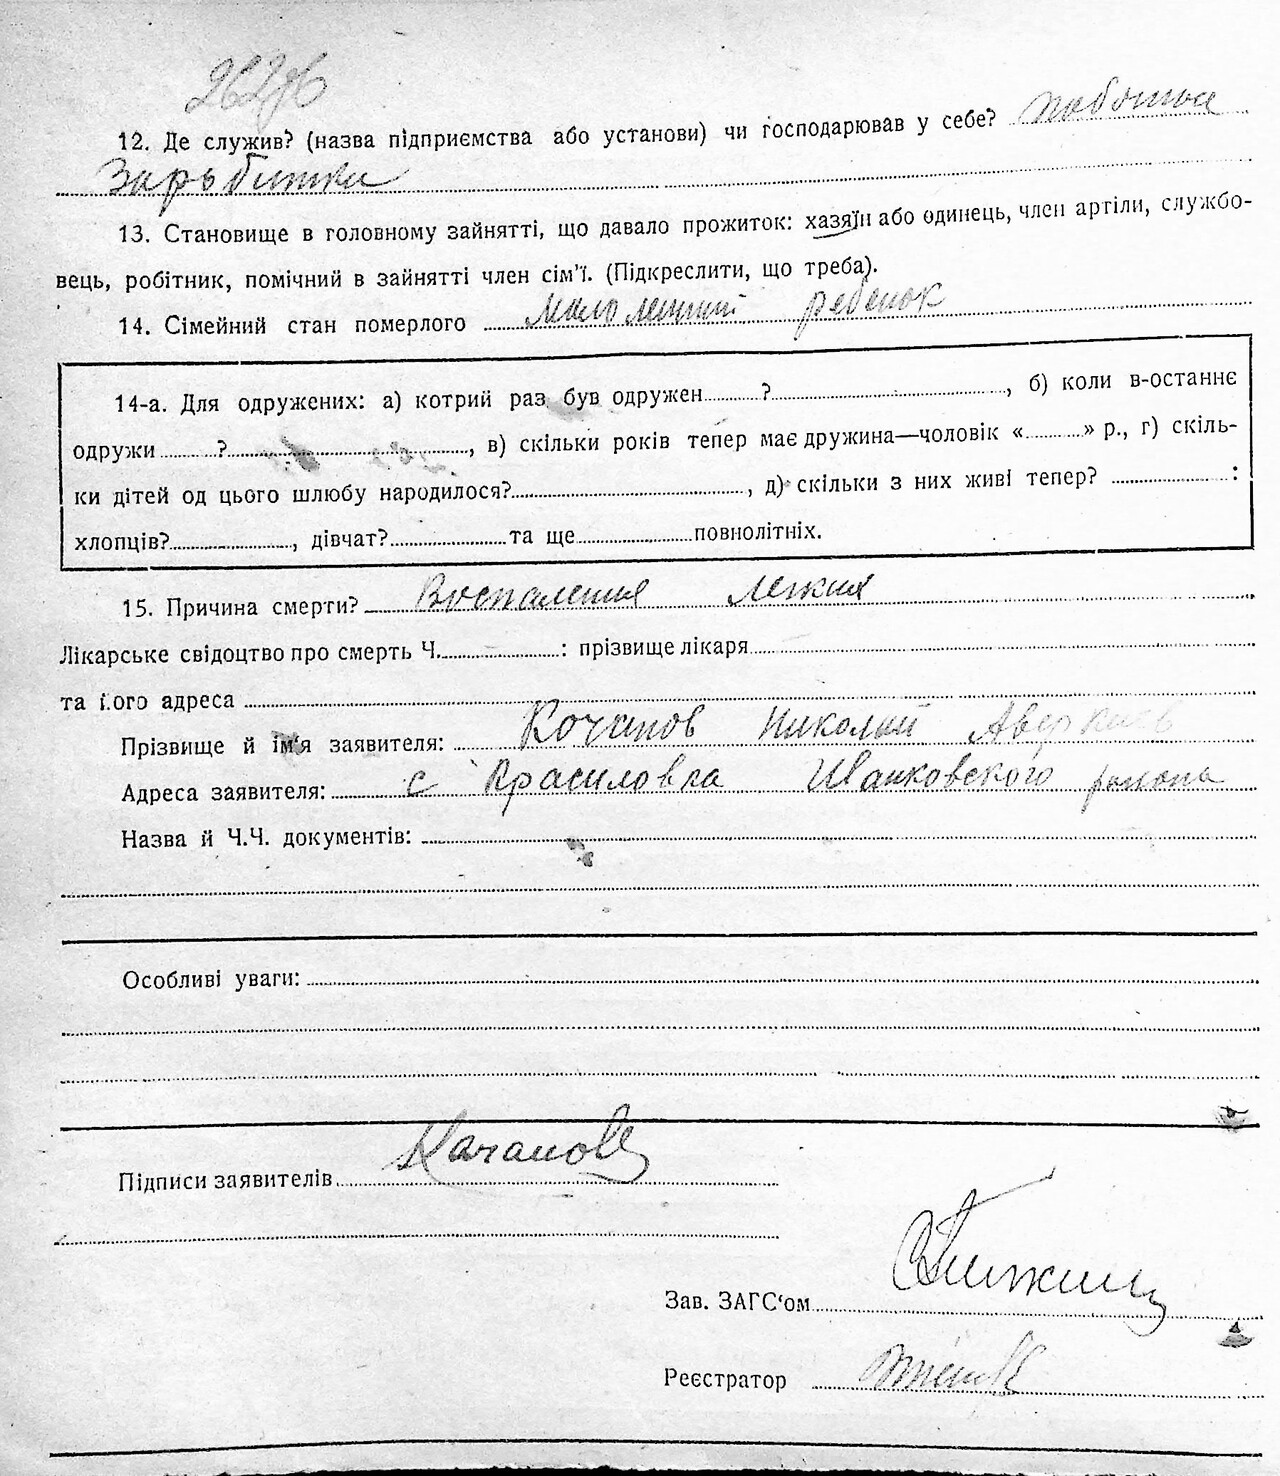 12. Де служив? (назва підприємства або установи) чи господарював у себе?
13. Становище в головному зайнятті, що давало прожиток: хазяїн або одинець, член артіли, службо-
вець, робітник, помічний в зайнятті член сім'ї. (Підкреслити, що треба).
14. Сімейний стан померлого ребенок
14-а. Для одружених: а) котрий раз був одружен ? , б) коли в-останнє
одружи ? , в) скільки років тепер має дружина—чоловік « » р., г) скіль-
ки дітей од цього шлюбу народилося? , д) скільки з них живі тепер? :
хлопців? , дівчат? та ще повнолітніх.
15. Причина смерти? Воспаления легких
Лікарське свідоцтво про смерть Ч. : прізвище лікаря
та його адреса
Прізвище й ім'я заявителя: Николай
Адреса заявителя: с Красиловка Иванковского района
Назва й Ч.Ч. документів:
Особливі уваги:
Підписи заявителів
Зав. ЗАГС'ом
Реєстратор